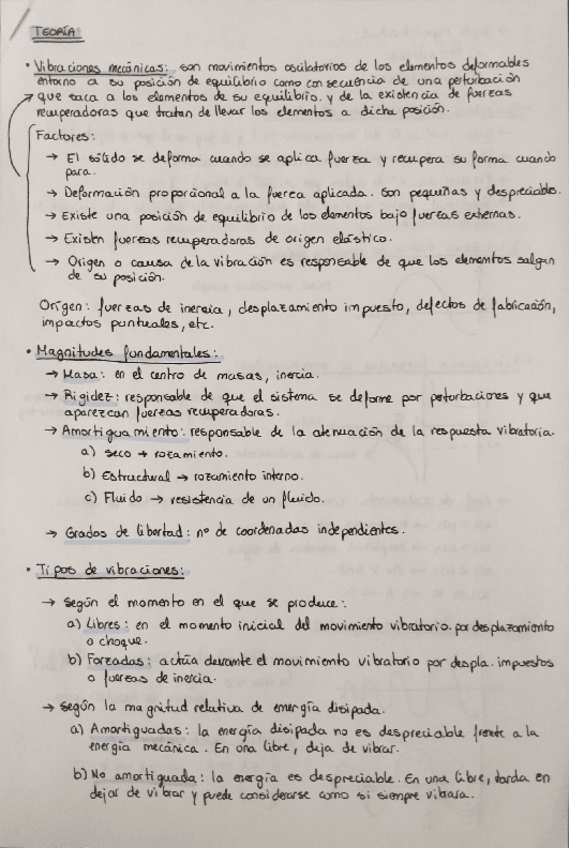 TEORÍA
• Vibraciones mecánicas: son movimientos oscilatorios de los elementos deformables
entorno a su posición de equilibrio como consecuencia de una perturbación
que saca a los elementos de su equilibrio. y de la existencia de fuerzas
recuperadoras que tratan de llevar los elementos a dicha posición.
Factores:
→ El sólido se deforma cuando se aplica fuerza y recupera su forma cuando
para.
→ Deformación proporcional a la fuerza aplicada. Son pequeñas y despreciables.
→ Existe una posición de equilibrio de los elementos bajo fuerzas externas.
→ Existen fuerzas recuperadoras de origen elástico.
→ Origen o causa de la vibración es responsable de que los elementos salgan
de su posición.
Origen: fuerzas de inercia, desplazamiento impuesto, defectos de fabricación,
impactos puntuales, etc.
• Magnitudes fundamentales:
→ Masa: en el centro de masas, inercia.
→ Rigidez: responsable de que el sistema se deforme por perturbaciones y que
aparezcan fuerzas recuperadoras.
→ Amortiguamiento: responsable de la atenuación de la respuesta vibratoria.
a) Seco → rozamiento.
b) Estructural → rozamiento interno.
c) Fluido → resistencia de un fluido.
→ Grados de libertad: nº de coordenadas independientes.
• Tipos de vibraciones:
→ Según el momento en el que se produce:
a) Libres: en el momento inicial del movimiento vibratorio. por desplazamiento
o choque.
b) Forzadas: actúa durante el movimiento vibratorio por despla. impuestos
o fuerzas de inercia.
→ Según la magnitud relativa de energía disipada.
a) Amortiguadas: la energía disipada no es despreciable frente a la
energía mecánica. En una libre, deja de vibrar.
b) No amortiguada: la energía es despreciable. En una libre, tarda en
dejar de vibrar y puede considerarse como si siempre vibrara.